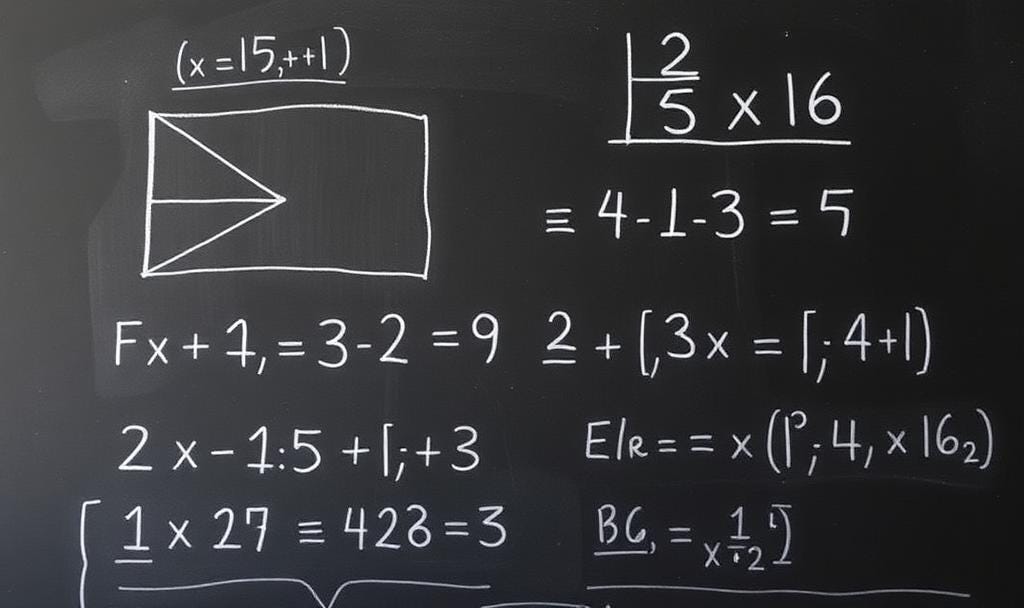 (x=15,++1)
2/5 x 16
≡ 4-1-3 = 5
Fx + 1,= 3-2 = 9
2 + [,3x = [; 4+1)
2 x - 1:5 + [; + 3
E/R = = x (P; 4, x 16₂)
1 x 27 ≡ 428 = 3
BC, = x 1/2